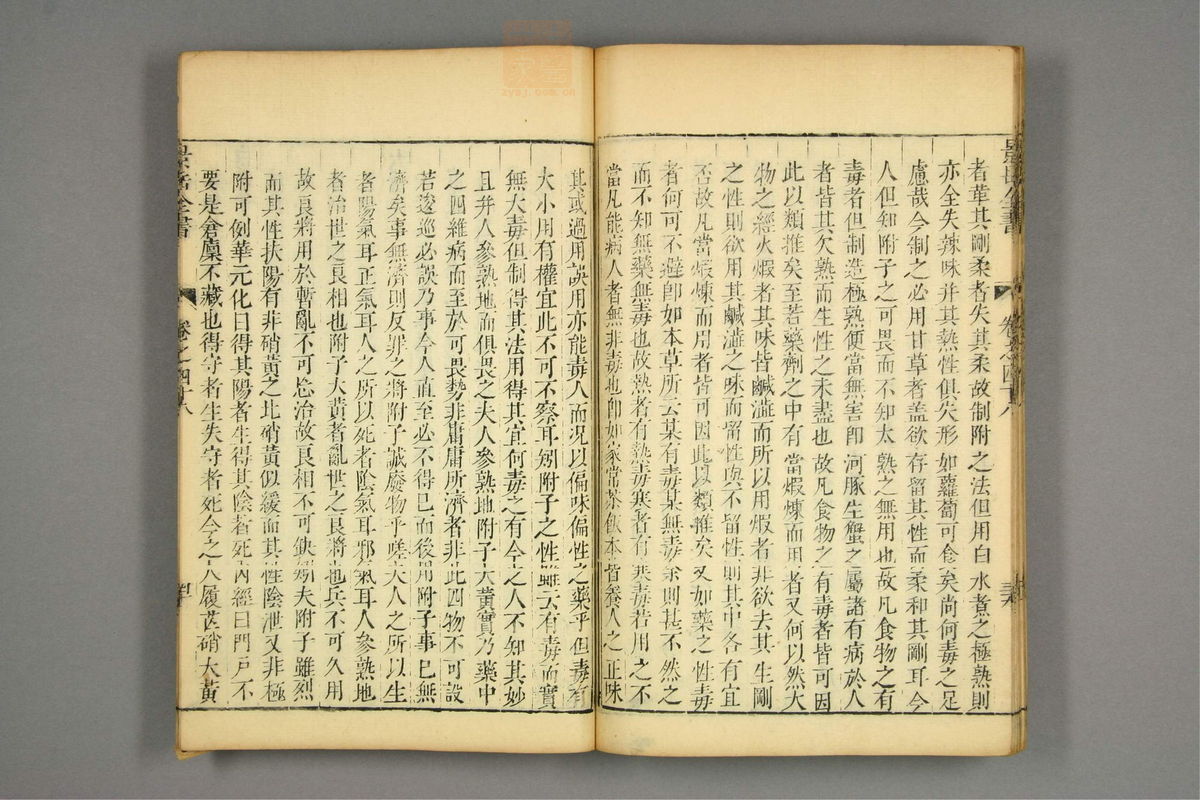 者革其剛柔者失其柔故制附之法但用白水煮之極熟則
亦全失辣味并其熱性俱失形如蘿蔔可食矣尚何毒之足
慮哉今制之必用甘草者盖欲存留其性而柔和其剛耳今
人但知附子之可畏而不知太熟之無用也故凡食物之有
毒者但制造極熟便當無害即河豚生蟹之屬諸有病於人
者皆其欠熟而生性之未盡也故凡食物之有毒者皆可因
此以類推矣至若藥劑之中有當煆煉而用者又何以然大
物之經火煆者其味皆鹹澁而所以用煆者非欲去其生剛
之性則欲用其鹹澁之味而留性與不留性則其中各有宜
否故凡當煆煉而用者皆可因此以類推矣又如藥之性毒
者何可不避即如本草所云某有毒某無毒余則甚不然之
而不知無藥無毒也故熱者有熱毒寒者有寒毒若用之不
當凡能病人者無非毒也即如家常茶飯本皆養人之正味
其或過用誤用亦能毒人而況以偏味偏性之藥乎但毒有
大小用有權宜此不可不察耳矧附子之性雖云有毒而實
無大毒但制得其法用得其宜何毒之有今之人不知其妙
且并人參熟地而俱畏之夫人參熟地附子大黃實乃藥中
之四維病而至於可畏勢非庸庸所濟者非此四物不可設
若逡巡必誤乃事今人直至必不得已而後用附子事已無
濟矣事無濟則反罪之將附子誠廢物乎嗟夫人之所以生
者陽氣耳正氣耳人之所以死者陰氣耳邪氣耳人參熟地
者治世之良相也附子大黃者亂世之良將也兵不可久用
故良將用於暫亂不可怠治故良相不可缺矧夫附子雖烈
而其性扶陽有非硝黃之比硝黃似緩而其性陰泄又非極
附可例華元化曰得其陽者生得其陰者死內經曰門戶不
要是倉廩不藏也得守者生失守者死今之人履芒硝大黃
景岳全書
卷之四十八
景岳全書
卷之四十八